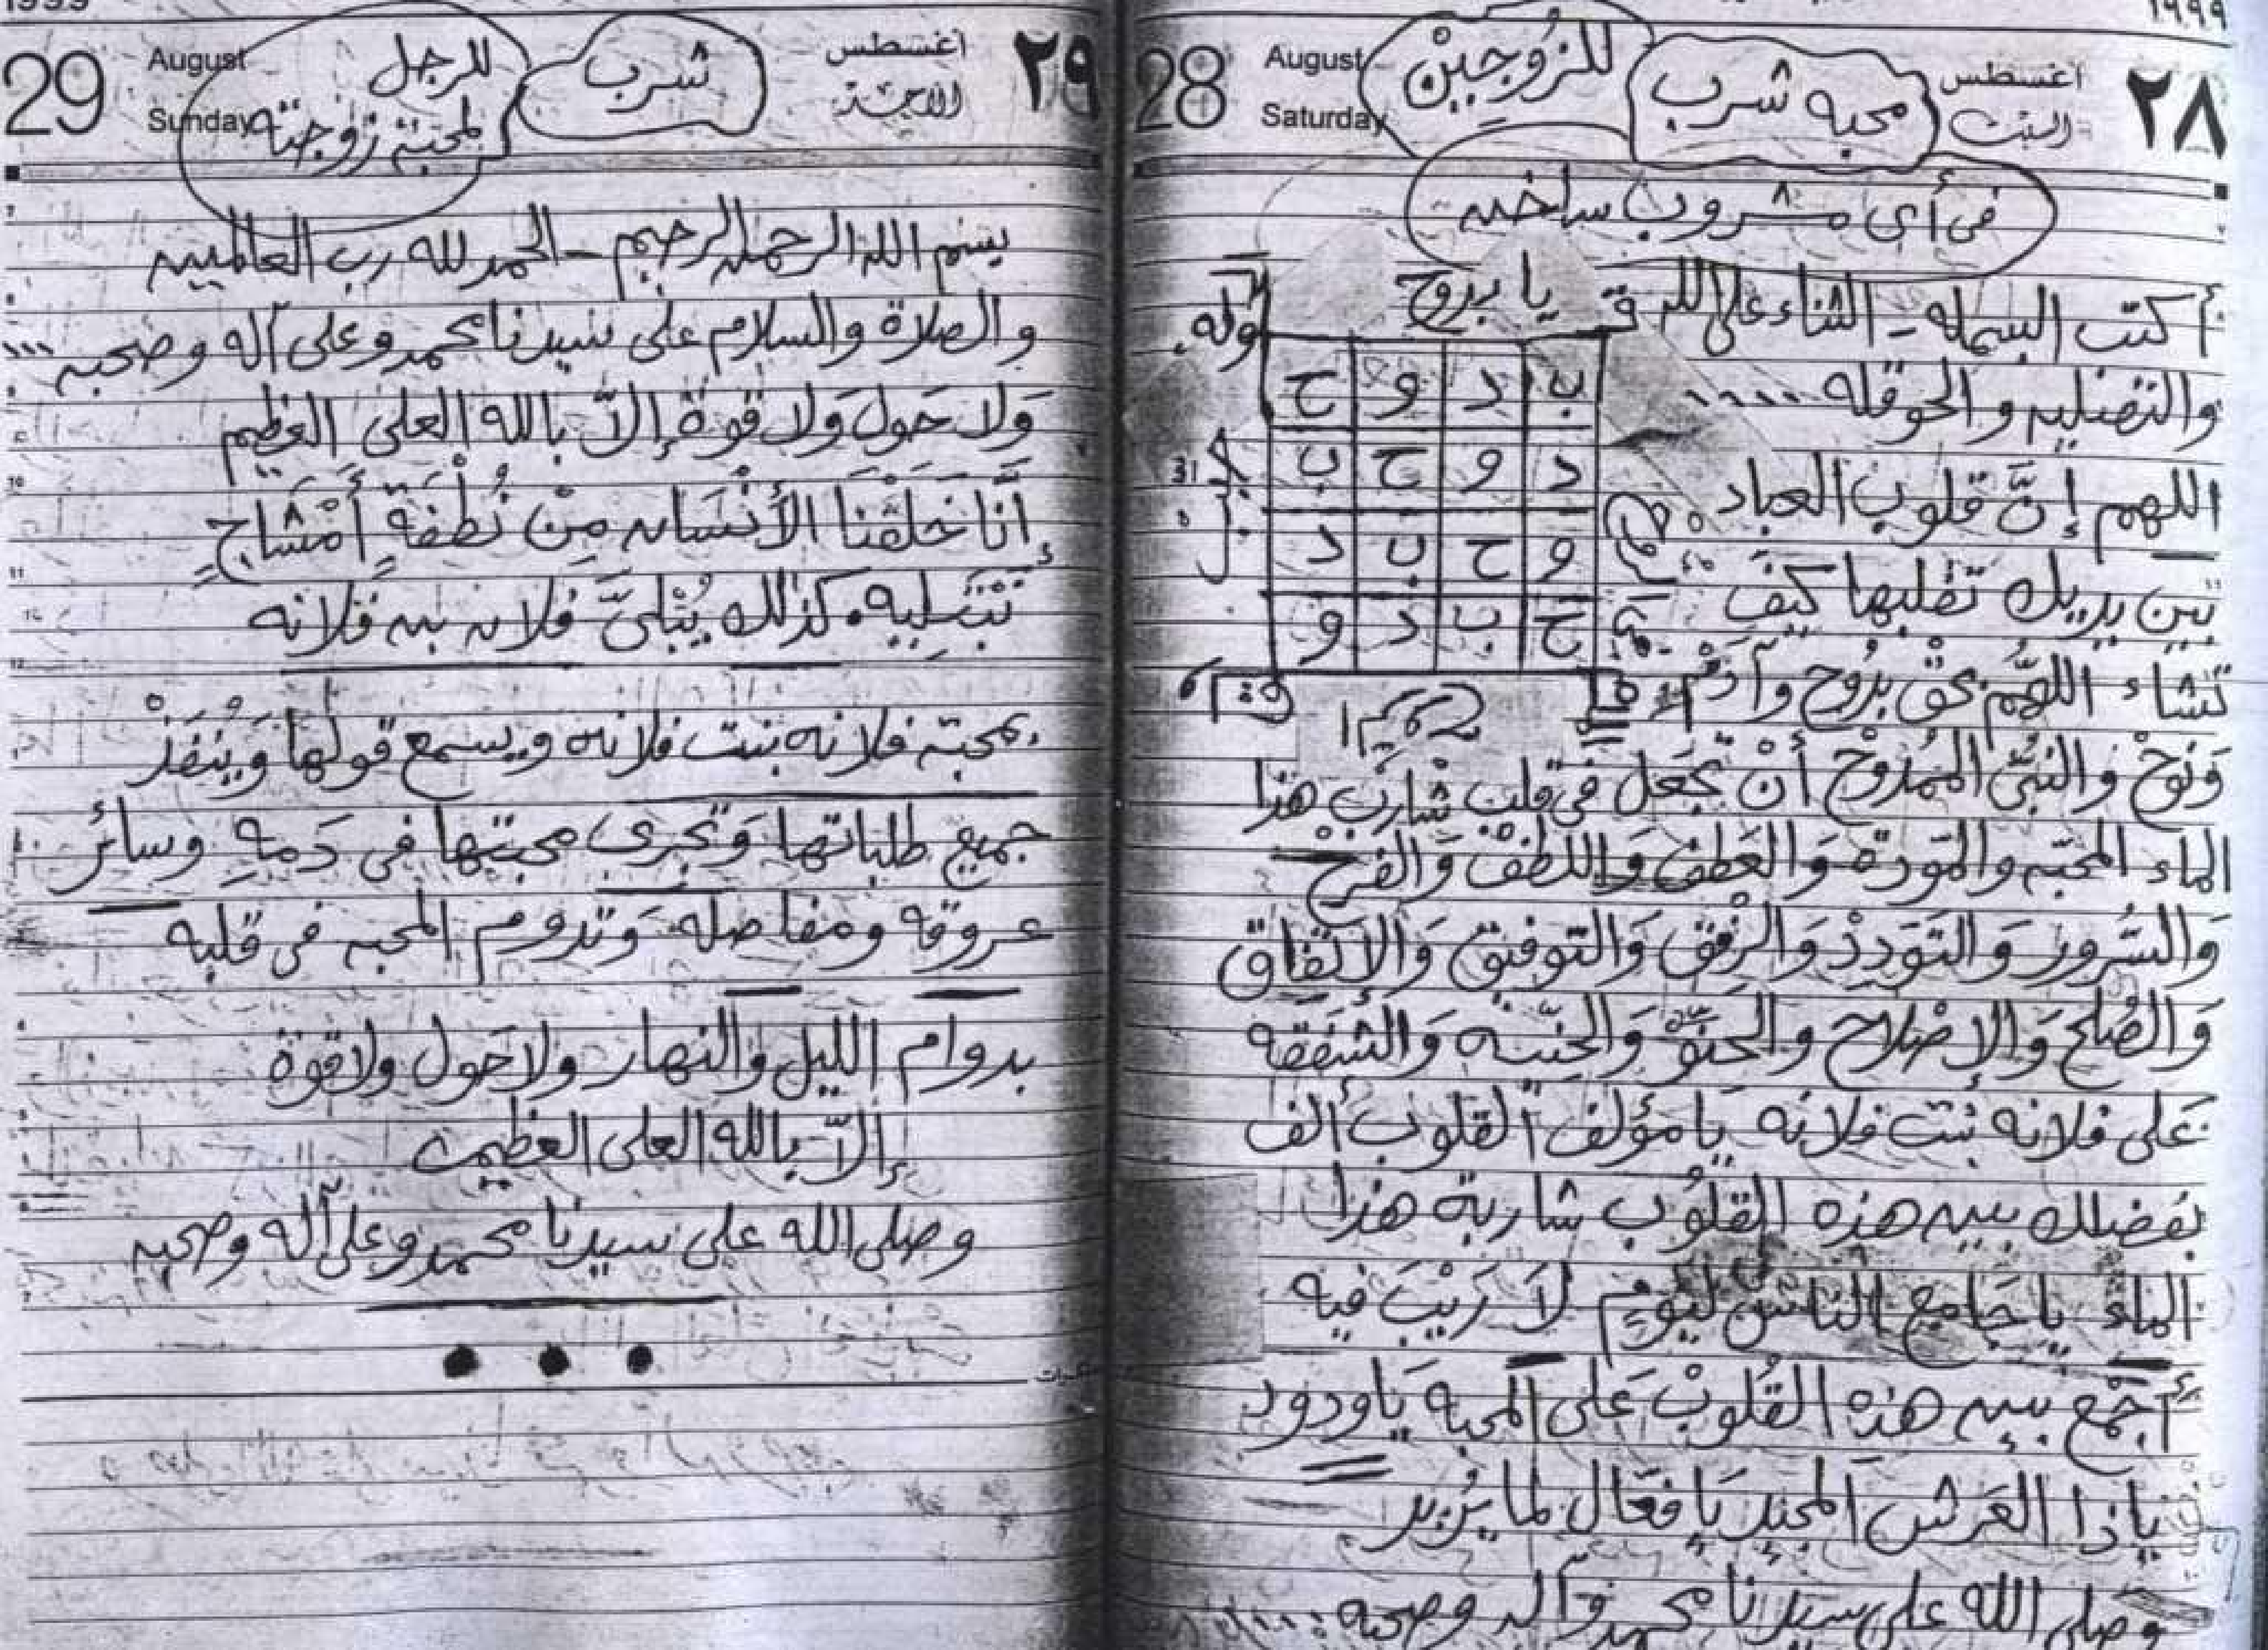 ١٩٩٩
٢٨
اغسطس
السبت
August
Saturday
28
محبه شرب
للزوجين
فى أى مشروب ساخن
أكتب البسمله - الثناء على الله
والتصليه والحوقله ......
اللهم إنَّ قلوب العباد
بين يديك تقلبها كيف
تشاء اللهم بحق بدوح وآدم
يا بدوح
قوله
ب د و ح
د و ح ب
و ح ب د
ح ب د و
وَنوحْ والنبىّ الممدوحْ أنْ تجعل فى قلب شارب هذا
الماء المحبّه والمودة وَالعَطفْ وَاللطفْ وَالفرحْ
وَالسُرور وَالتوَددْ وَالرفق وَالتوفيق وَالإتفاق
وَالصُلح وَالإصْلاح والحنوّ وَالحنيّه وَالشفقه
عَلى فلانه بنت فلانه يا مؤلف القلوب ألف
بفضلك بين هذه القلوُب شاربة هذا
الماء يا جَامع الناس ليَوْمٍ لاَ رَيْبَ فيه
أجْمع بين هذه القُلوبْ عَلى المحبة يَا ودود
ياذا العَرش المجيد يَا فعّال لما يُريد
وصلى الله على سيدنا محمد وآله وصحبه
1999
٢٩
اغسطس
الاحد
August
Sunday
29
شرب
للرجل
لمحبة زوجته
بسم الله الرحمن الرحيم - الحمد لله رب العالمين
والصلاة والسلام على سيدنا محمد وعلى آله وصحبه ...
وَلا حَول وَلا قوة إلاّ بالله العلى العظيم
إنَّا خَلقْنا الأنْسَان مِنْ نُطْفَةٍ أمْشَاجٍ
نَبْتَلِيه. كذلك يُبْتلىَ فلان بن فلانه
بمحبة فلانه بنت فلانه ويسمع قولها وَيُنَفذْ
جميع طلباتها وَتجرى محبتها فى دَمهِ وسائر
عروقه ومفاصله وَتدوم المحبه فى قلبه
بدوام الليل والنهار ولا حَول ولا قوة
إلاّ بالله العلى العظيم
وصلى الله على سيدنا محمد وعلى آله وصحبه